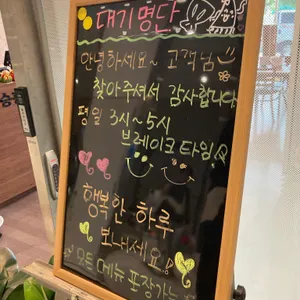 대기명단
안녕하세요~ 고객님
찾아주셔서 감사합니다
평일 3시~5시
브레이크타임
행복한 하루
보내세요!
모든 메뉴 포장가능